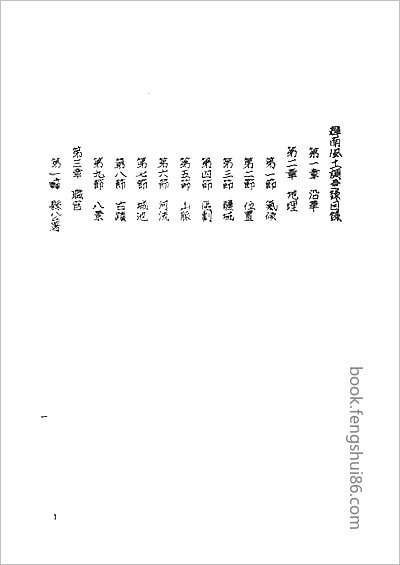 輝南風土調查錄目錄
第一章 沿革
第二章 地理
第一節 氣候
第二節 位置
第三節 疆域
第四節 區劃
第五節 山脈
第六節 河流
第七節 城池
第八節 古蹟
第九節 八景
第三章 職官
第一節 縣公署
一
1
book.fengshui86.com